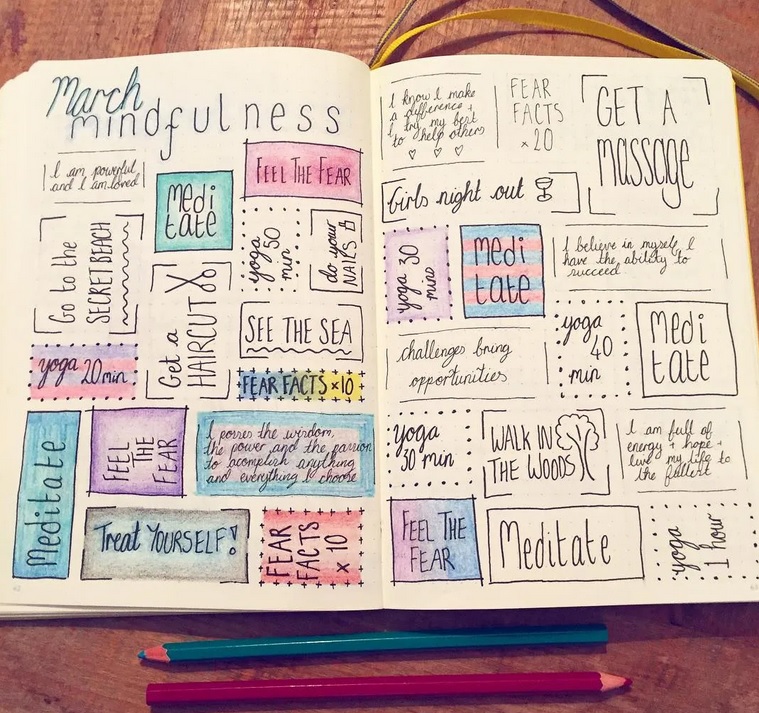 March
mindfulness
I am powerful
and I am loved
Medi
tate
FEEL THE FEAR
Go to the
SECRET BEACH
yoga 50
min
do your
NAILS
Get a
HAIRCUT
SEE THE SEA
yoga 20 min
FEAR FACTS x10
Meditate
FEEL
THE
FEAR
I posses the wisdom,
the power and the passion
to acomplish anything
and everything I choose
Treat YOURSELF!
FEAR
FACTS
x 10
I know I make
a difference +
I try my best
to help others
FEAR
FACTS
x 20
GET A
massage
Girls night out
yoga 30
mins
Medi
tate
I believe in myself I
have the ability to
succeed
challenges bring
opportunities
yoga
40
min
Medi
tate
yoga
30 min
WALK IN
THE WOODS
I am full of
energy + hope +
live my life to
the fullest
FEEL THE
FEAR
Meditate
yoga
1 hour